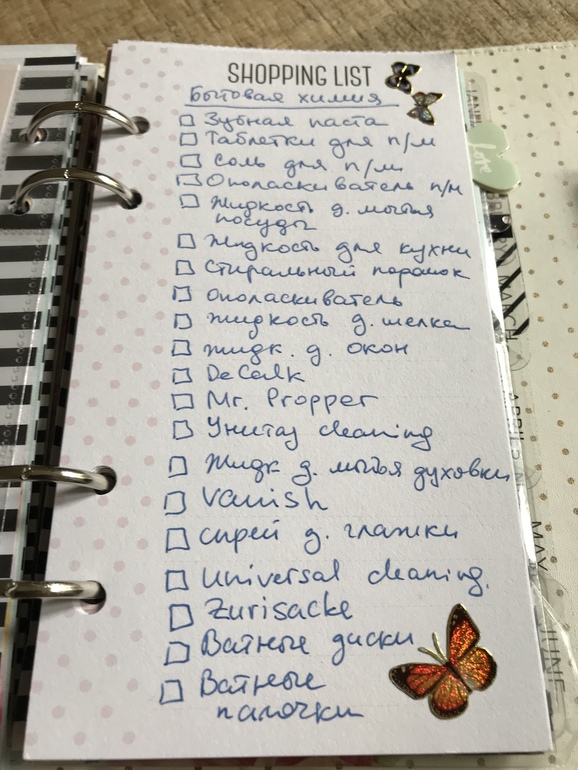 SHOPPING LIST
Бытовая химия
Зубная паста
Таблетки для п/м
Соль для п/м.
Ополаскиватель п/м
Жидкость д. мытья
посуды
Жидкость для кухни
Стиральный порошок
Ополаскиватель
Жидкость д. шелка
Жидк. д. окон
DeCalk
Mr. Propper
Унитаз cleaning
Жидк д. мытья духовки
Vanish
Спрей д. глажки
Universal cleaning.
Zürisäcke
Ватные диски
Ватные
палочки
love
MARCH
APRIL
MAY
JUNE